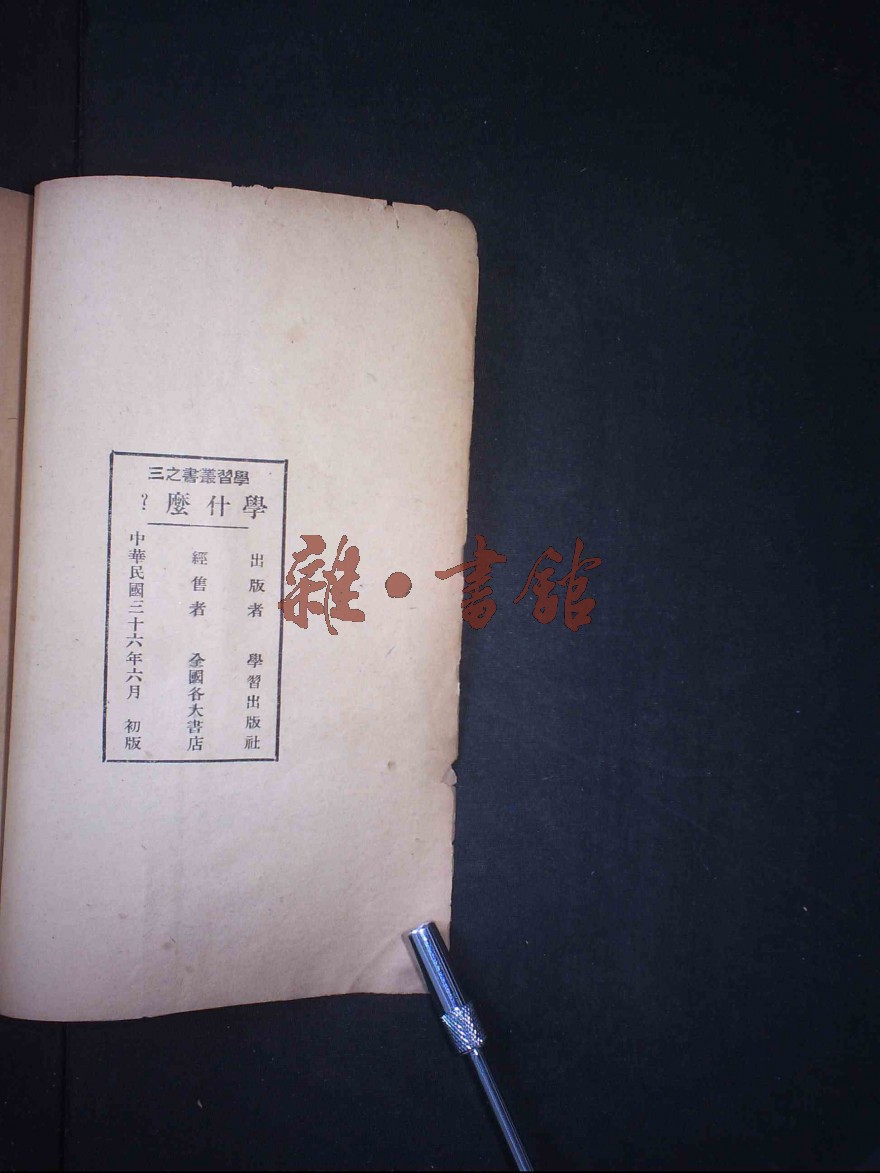 學習叢書之三
學什麼？
出版者 學習出版社
經售者 全國各大書店
中華民國三十六年六月 初版
雜·書館